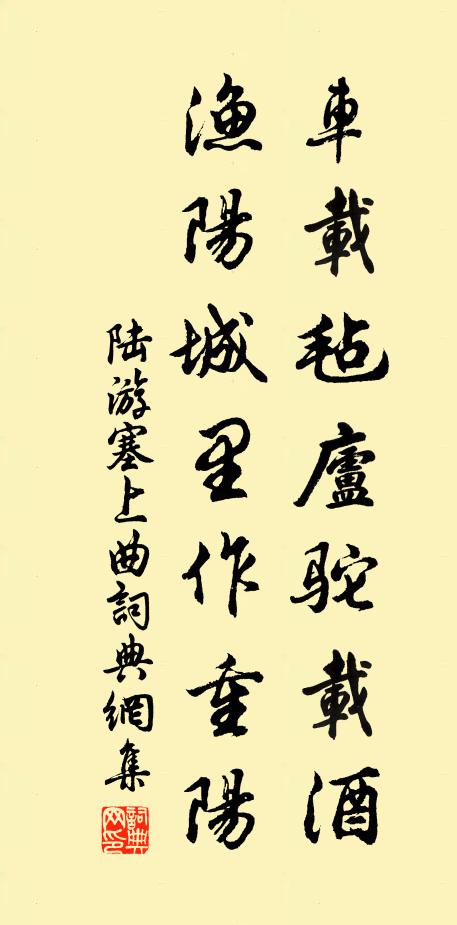 車載毡廬駝載酒
漁陽城里作重陽
陆游塞上曲詞典網集
詞典
网印